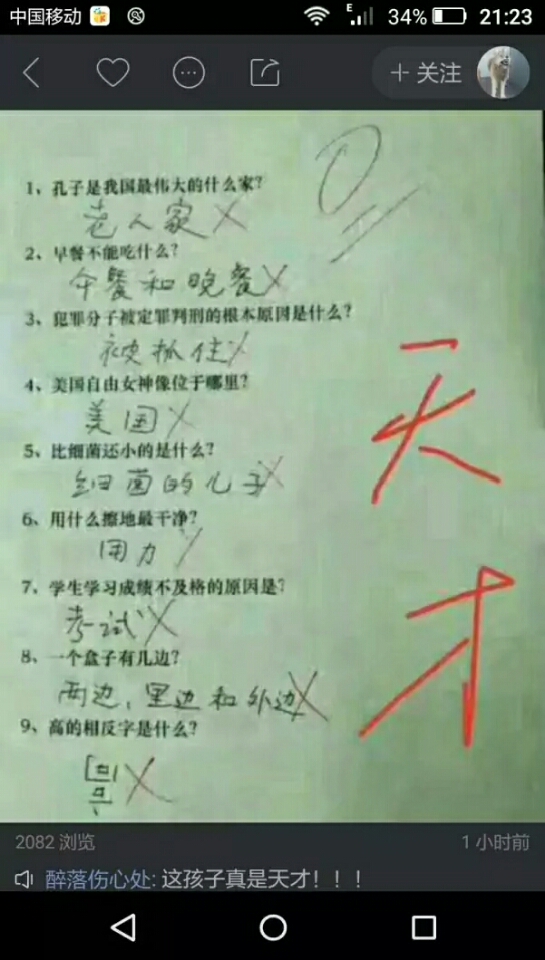 中国移动 E 34% 21:23
+ 关注
0
1、孔子是我国最伟大的什么家?
老人家 X
2、早餐不能吃什么?
午餐和晚餐 X
3、犯罪分子被定罪判刑的根本原因是什么?
被抓住 X
4、美国自由女神像位于哪里?
美国 X
5、比细菌还小的是什么?
细菌的儿子 X
6、用什么擦地最干净?
用力 X
7、学生学习成绩不及格的原因是?
考试 X
8、一个盒子有几边?
两边,里边和外边 X
9、高的相反字是什么?
X
天才
2082 浏览
1 小时前
醉落伤心处: 这孩子真是天才!!!